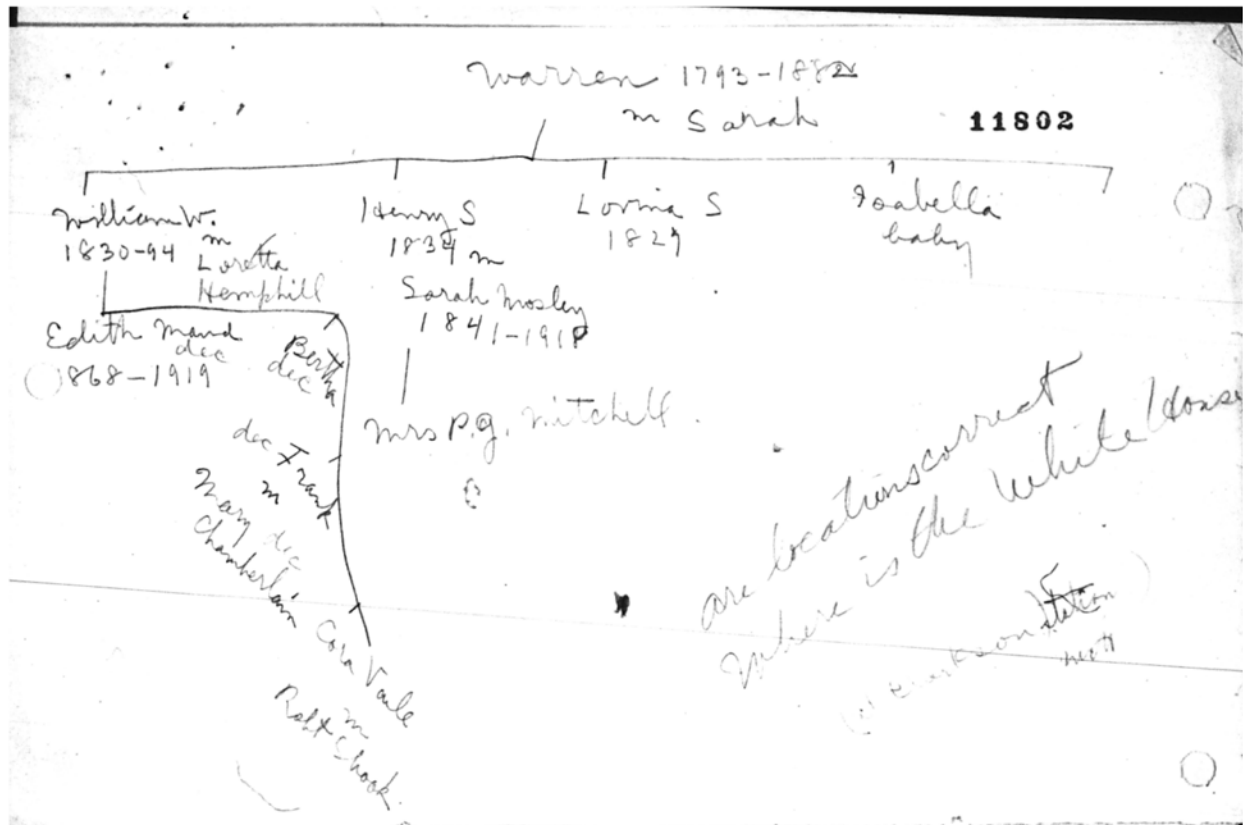 Warren 1793-1882
m Sarah
11802
William W.
1830-94 m
Loretta
Hemphill
Henry S
1834 m
Sarah Mosley
1841-1918
Lovina S
1829
Isabella
baby
Edith Maud
dec
1868-1919
Bertha
dec
Mrs P.G. Mitchell
dec Frank
m
Mary dec
Chamberlain
Cora Vaile
m
Robt Shook.
are locations correct
Where is the White House
station